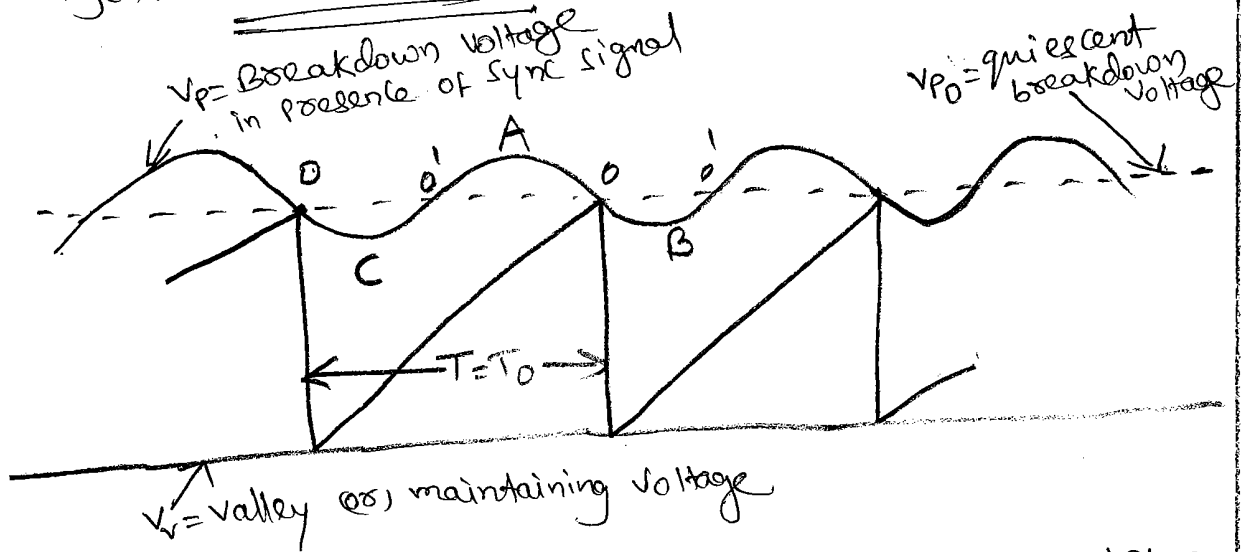 Vp= Breakdown Voltage
in presence of Sync signal
Vpo = quiescent
breakdown
Voltage
A
O
O'
O
O'
C
B
T=To
Vv= Valley (or) maintaining Voltage